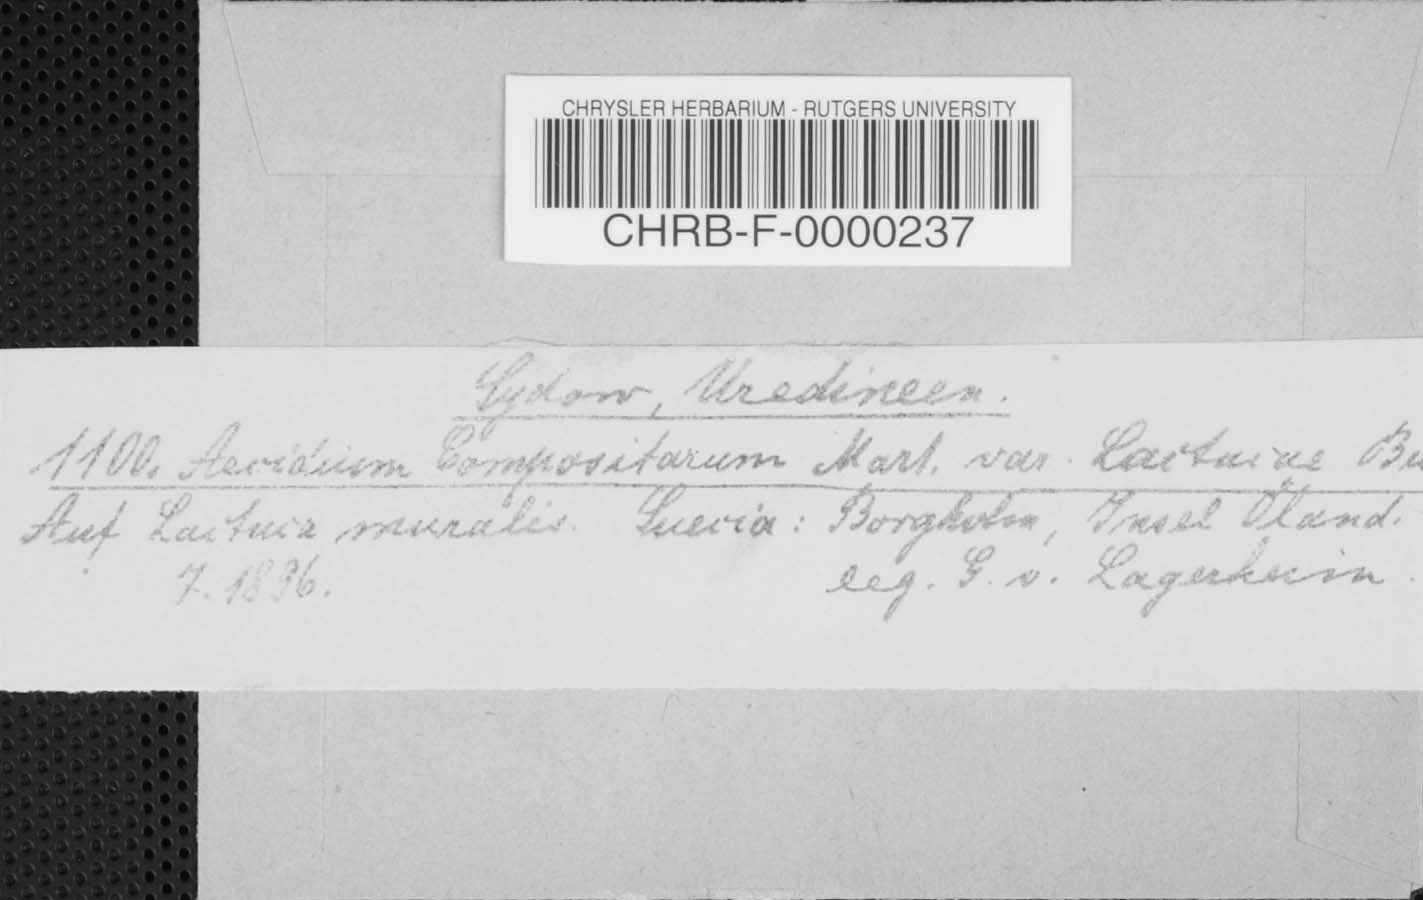 CHRYSLER HERBARIUM - RUTGERS UNIVERSITY
CHRB-F-0000237
Sydow, Uredineen.
1100. Aecidium Compositarum Mart. var. Lactucae Bu
Auf Lactuca muralis. Suecia: Borgholm, Insel Öland.
7. 1896. leg. G. v. Lagerheim.